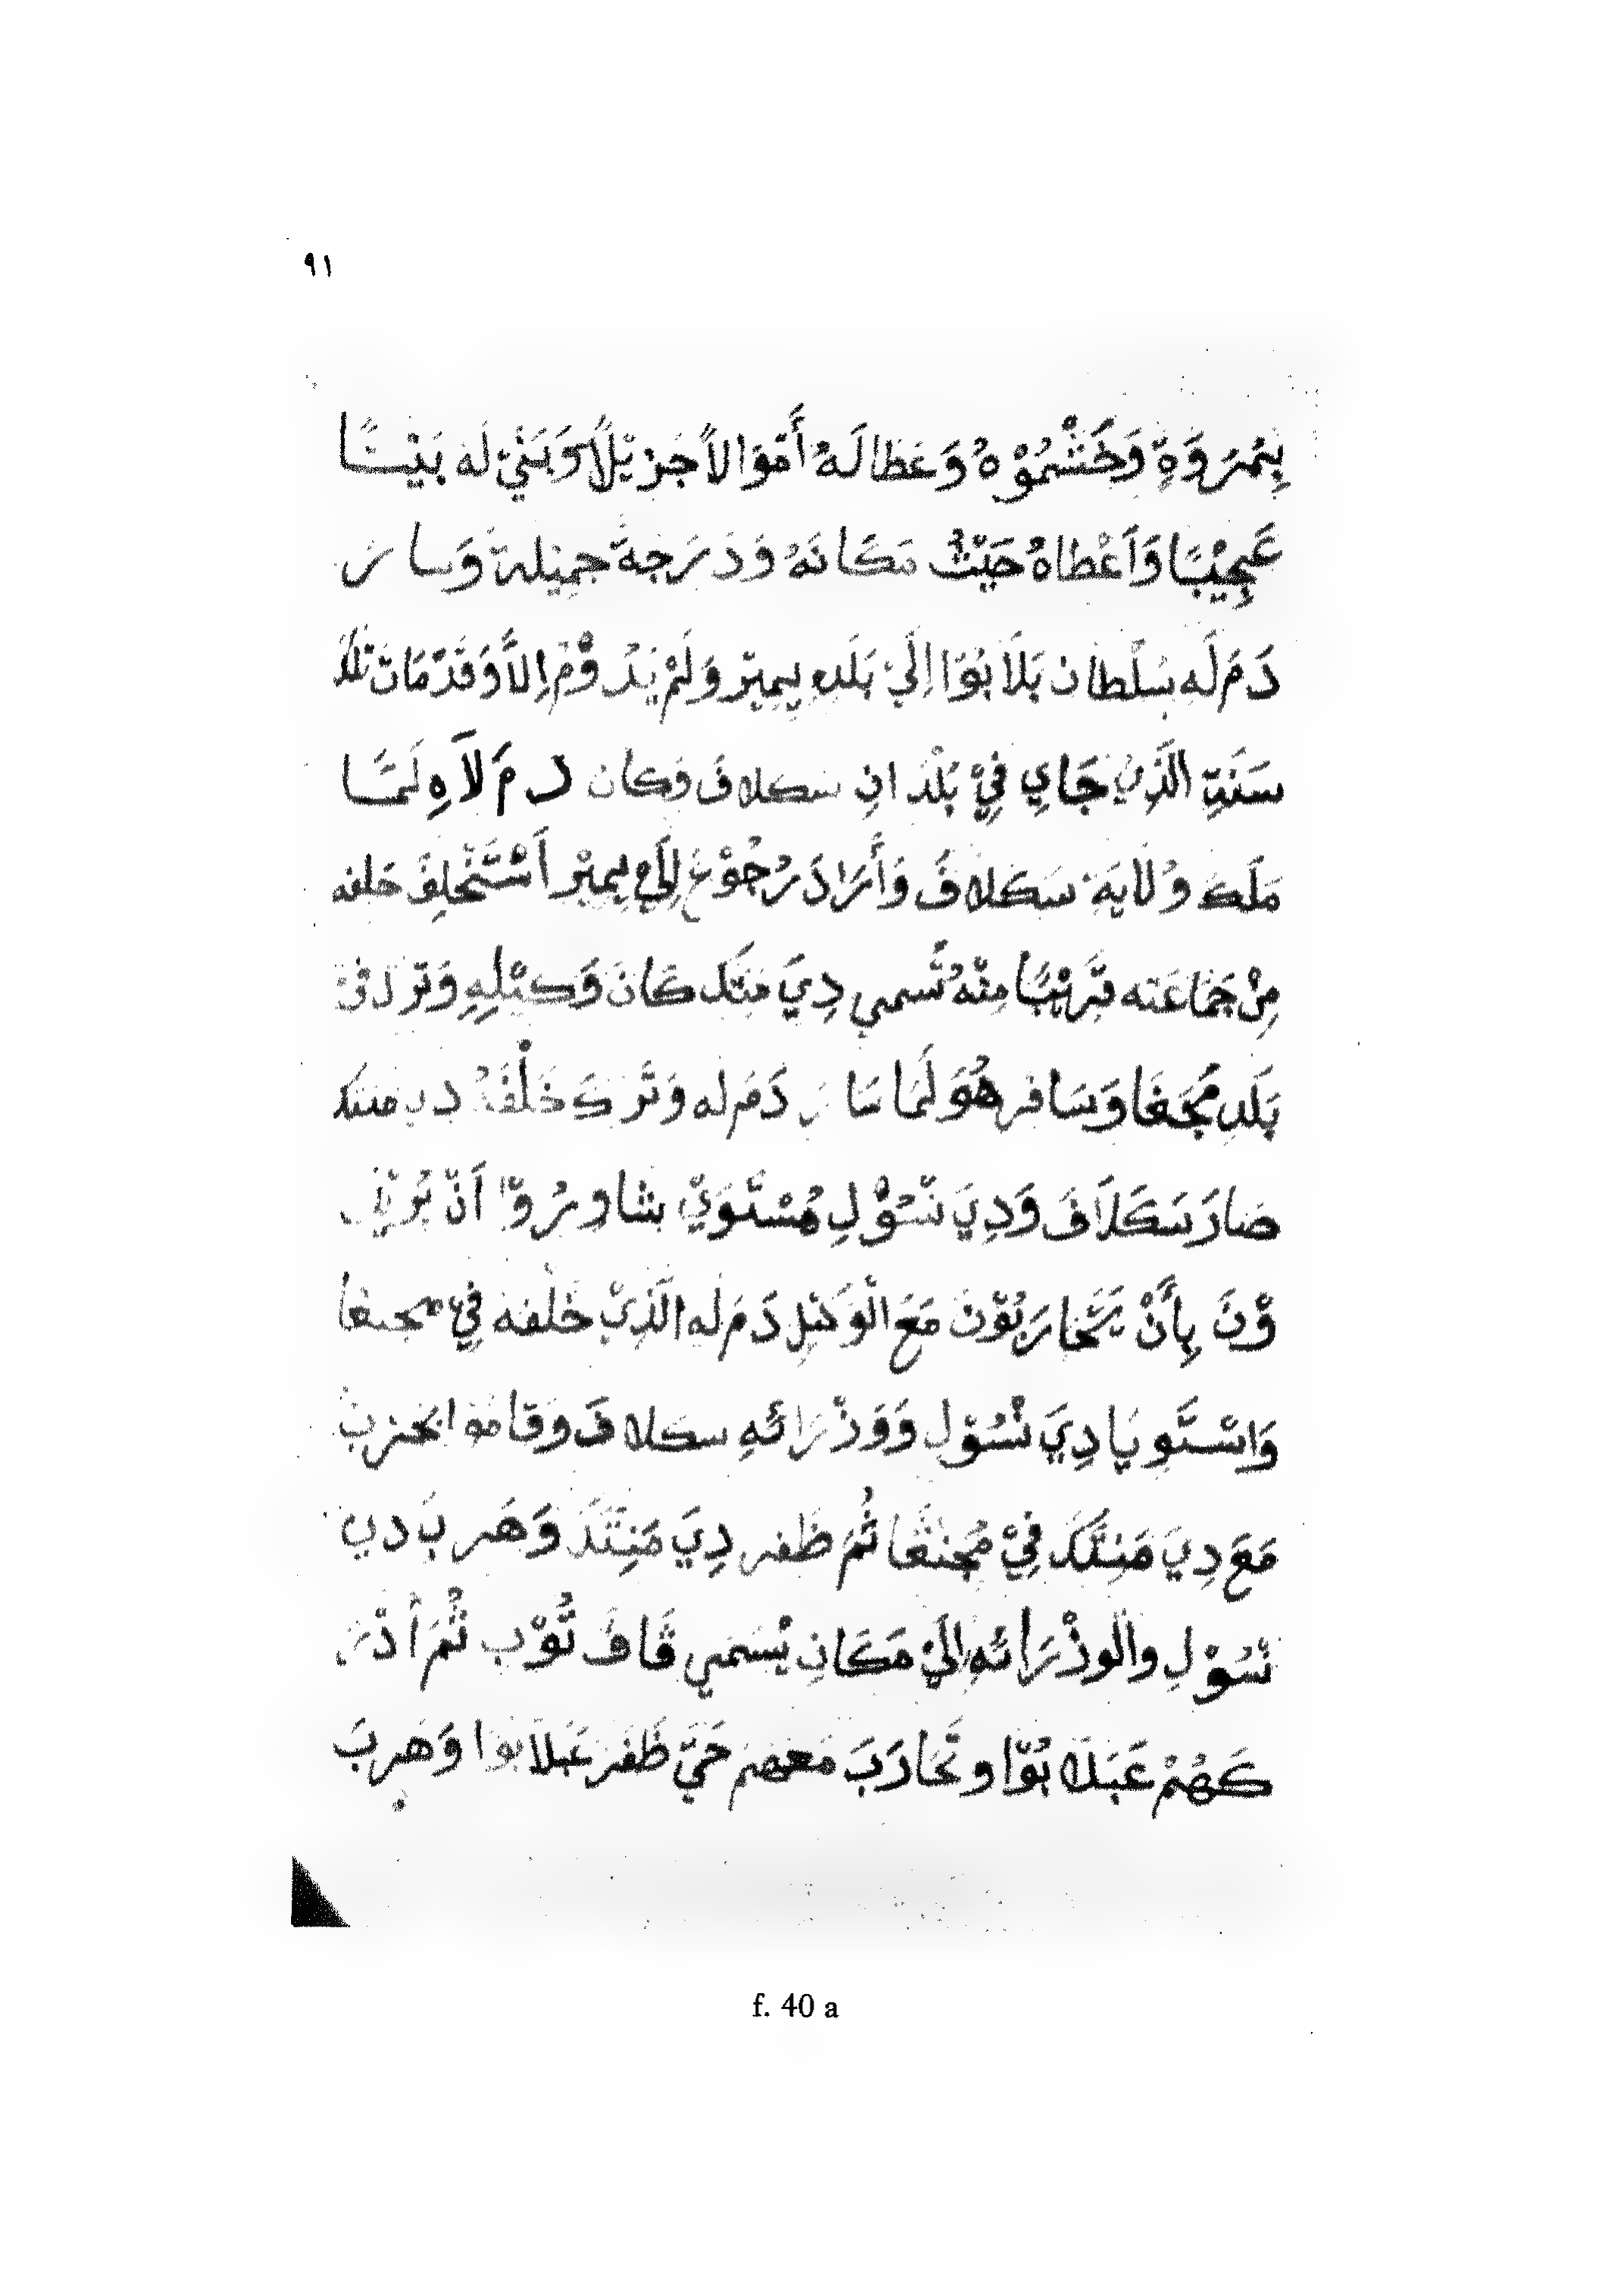 ٩١
بِثَمَرَوَةٍ وَحَشْمُوْهُ وَعَطَا لَهُ أَمْوَالاً جَزِيْلاً وَبَنَيْ لَه بَيْتًا
عَجِيْبًا وَاَعْطَاهُ حَيْثُ مَكَانَهُ وَدَرَجَةً جَمِيْلَةً وَسَارَ
دَمَ لَه سُلْطَان بَلاَبُوَا اِلَيْ بَلَدِ يِمِيْرِ وَلَمْ يَدُوْمْ اِلاَّ وَقَدْ مَاتَ تلك
سَنَتِ الَّذِيْ جَايِ فِيْ بُلْدَانِ سكلاف وَكان دَمَ لاَهِ لَمَّا
مَلَكَ وُلاَيَةِ سَكَلاَفَ وَأَرَادَ رُجُوْعَ اِلَيْ يِمِيْرِ اَسْتَخْلِفَ خلفه
مِنْ جَمَاعَتِه قَرِيْبًا مِنْهُ تُسمي دِيَ مَنِتَكَ كَانَ وَكِيْلِهِ وَترك في
بَلَدِ مَجَنْغَا وَسَافر هُوَ لَمَا سَارَ دَمَ لَه وَتَرَكَ خَلْفَهُ دي منتك
صَارَ سَكَلاَفَ وَدِيَ نَسُوْلِ مُسْتَوِيْ بشَاوِرُوْا اَنْ يُرِيْدُ
وْنَ بِأَنْ يَتَحَارَبُوْنَ مَعَ الْوَكِيْلِ دَمَ لَه الَّذِيْ خَلْفَه فِيْ مجنغا
وَاسْتَوِيَا دِيَ نَسُوْلِ وَوَزْرَائَهِ سكلاف وَقَامُوا بحرب
مَعَ دِيَ مَنِتَكَ فِيْ مَجَنْغَا ثُمَ ظَفر دِيَ مَنِتَكَ وَهَرب دي
نَسُوْلِ والوزْرَائه اِلَيْ مَكَانٍ يُسَمي ڤَافَ تُوْب ثُمَ أدْرَ
كَهُمْ عَبَلاَبُوْا وتَحَارَبَ مَعَهم حَتَّي ظَفَر عَبلاَبُوَا وَهَرِبَ
f. 40 a